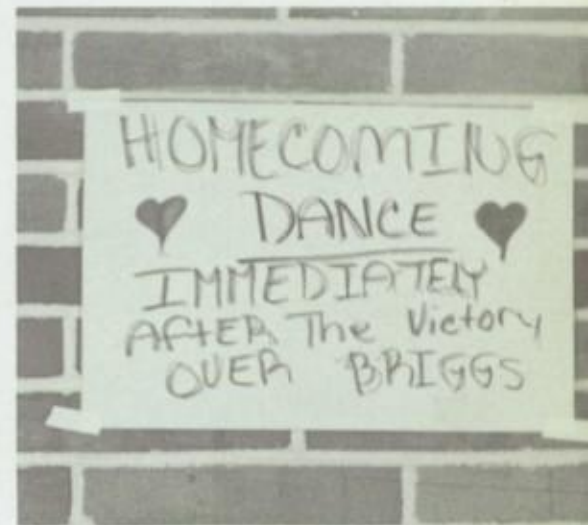 HOMECOMING
DANCE
IMMEDIATELY
AFTER The Victory
OVER BRIGGS